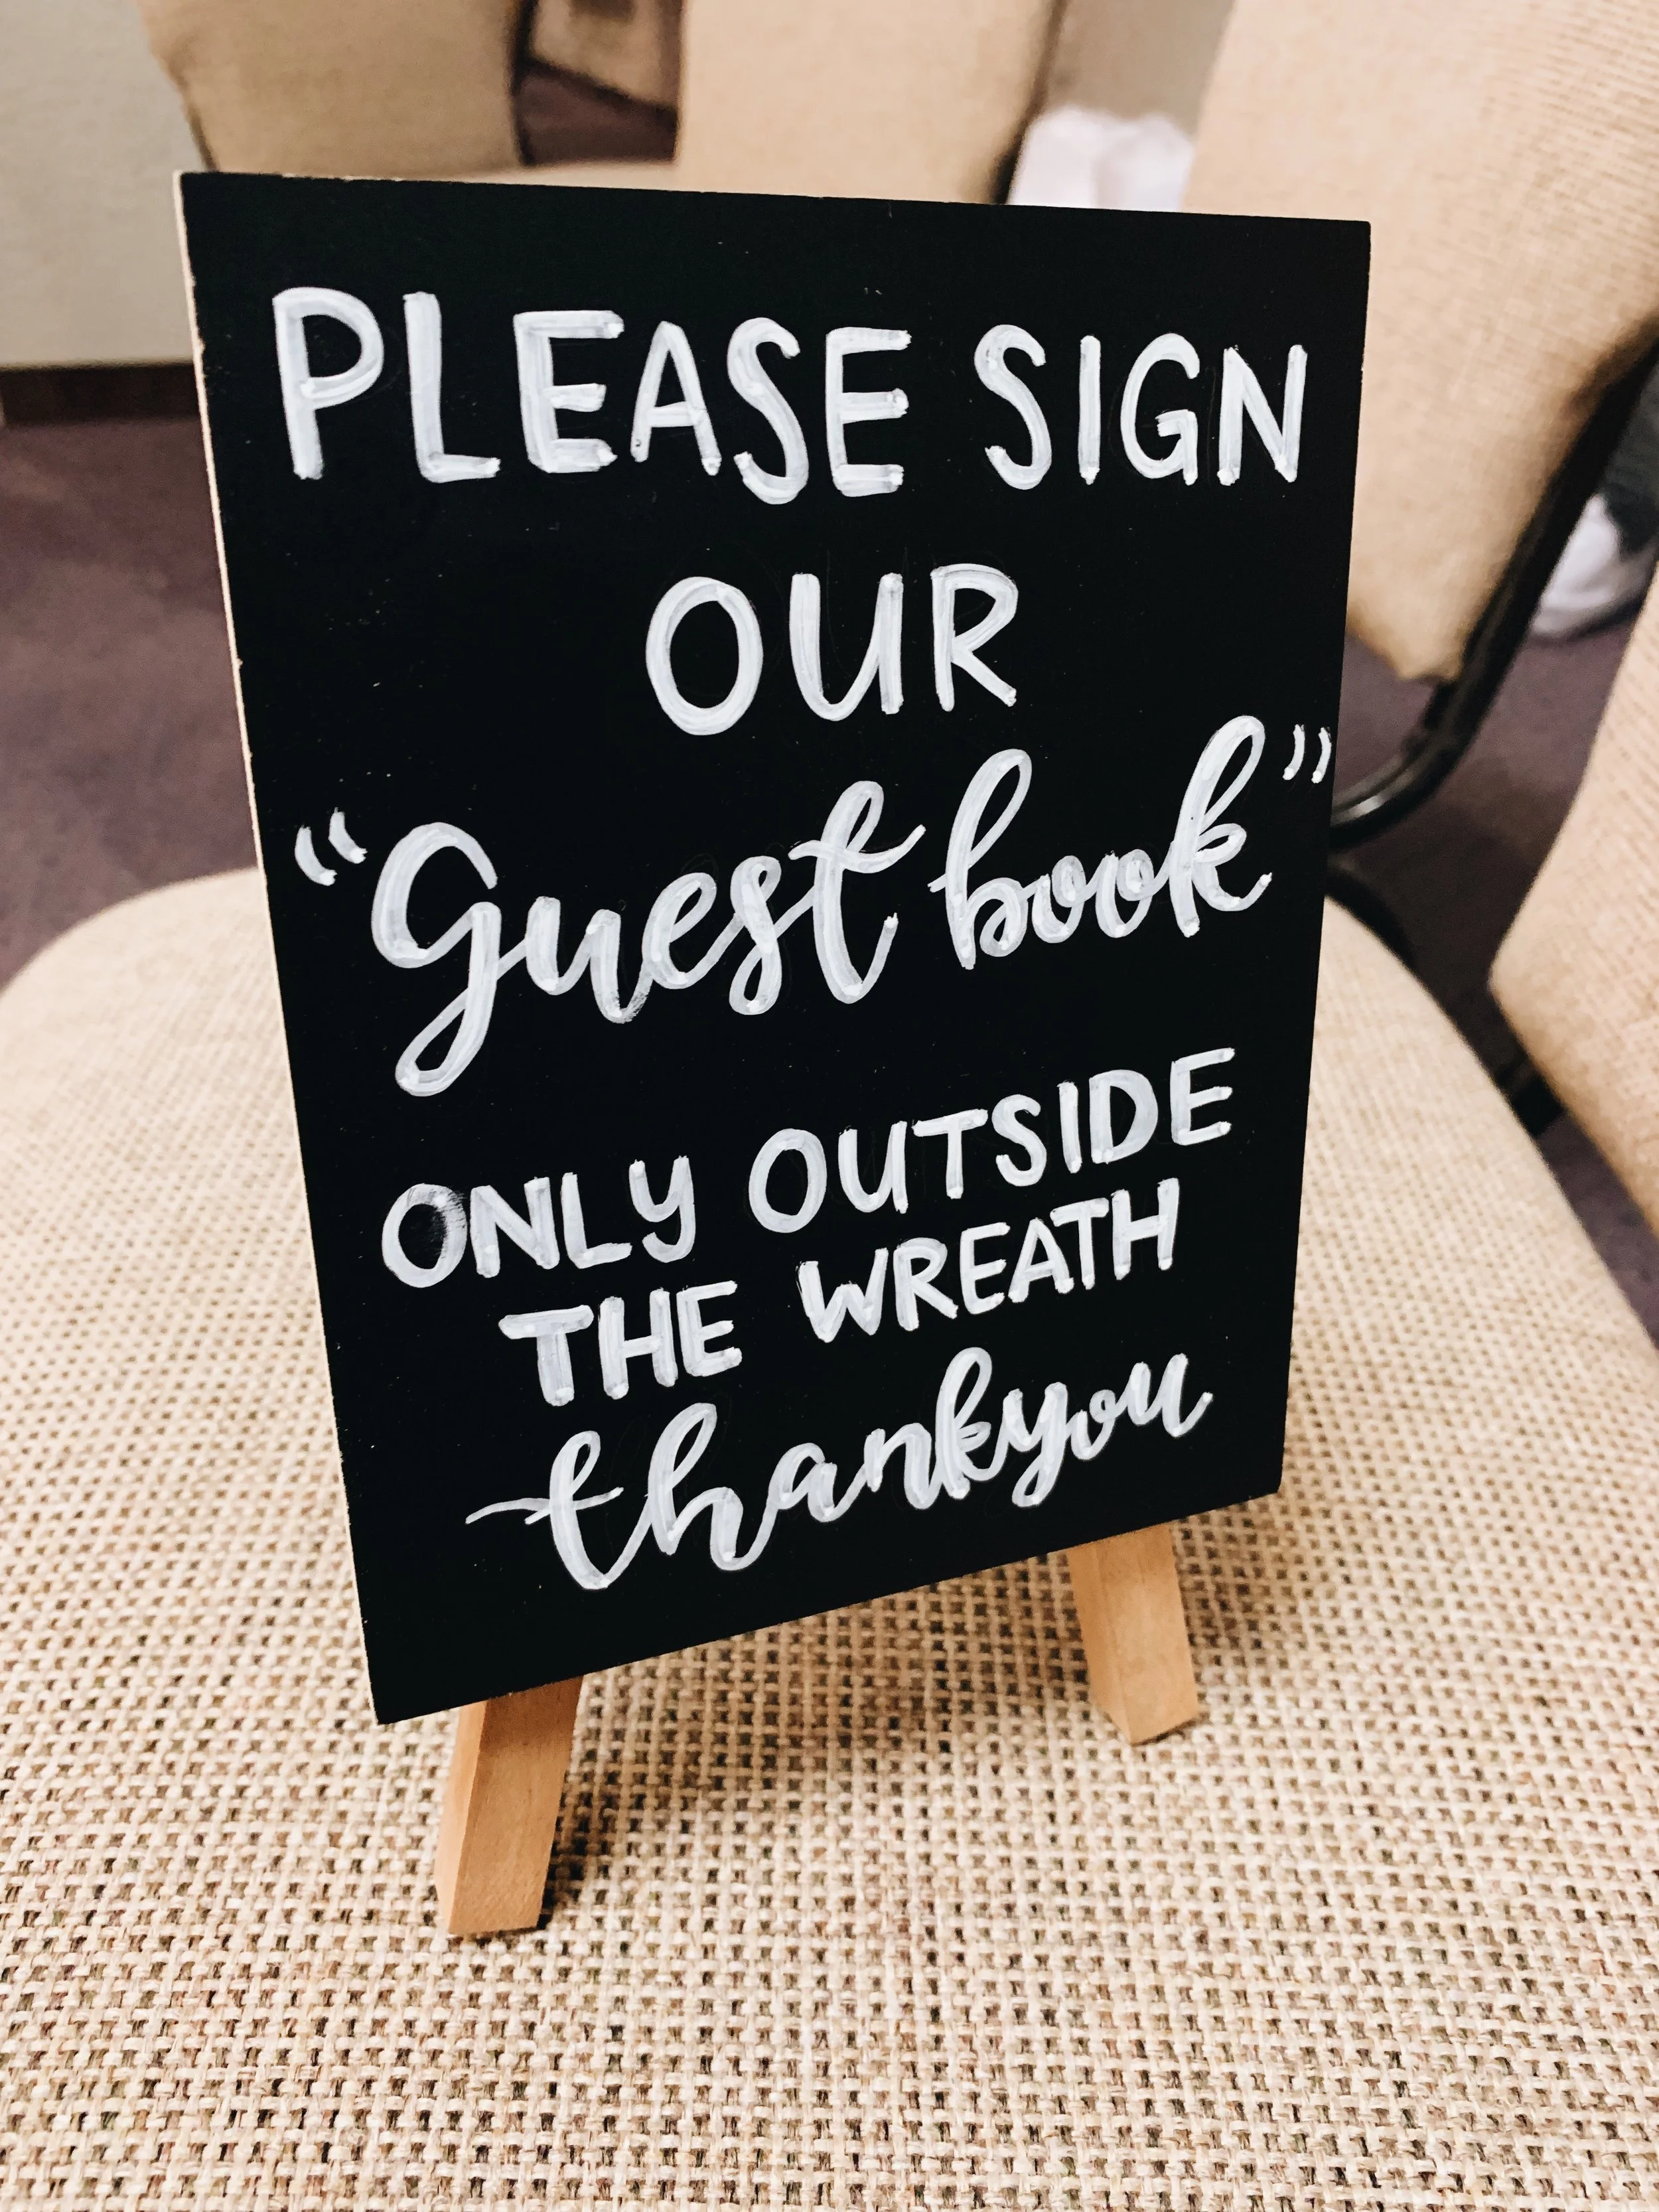 PLEASE SIGN
OUR
"Guest book"
ONLY OUTSIDE
THE WREATH
thankyou